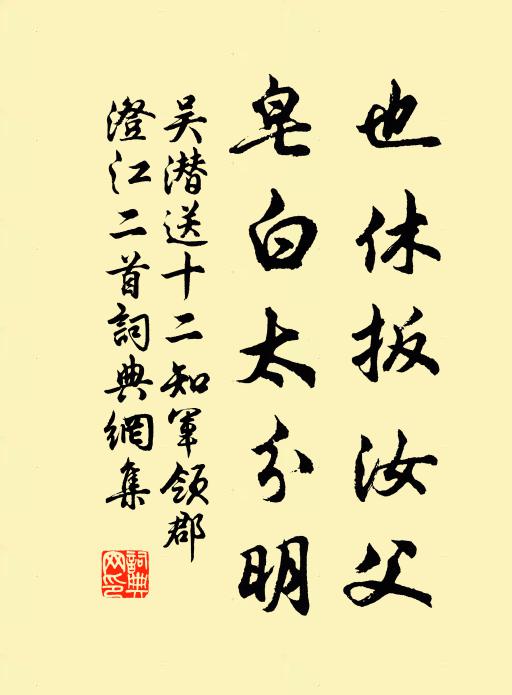 也休扳汝父
皂白太分明
吴潜送十二知军领郡
澄江二首詞典網集
詞典網印